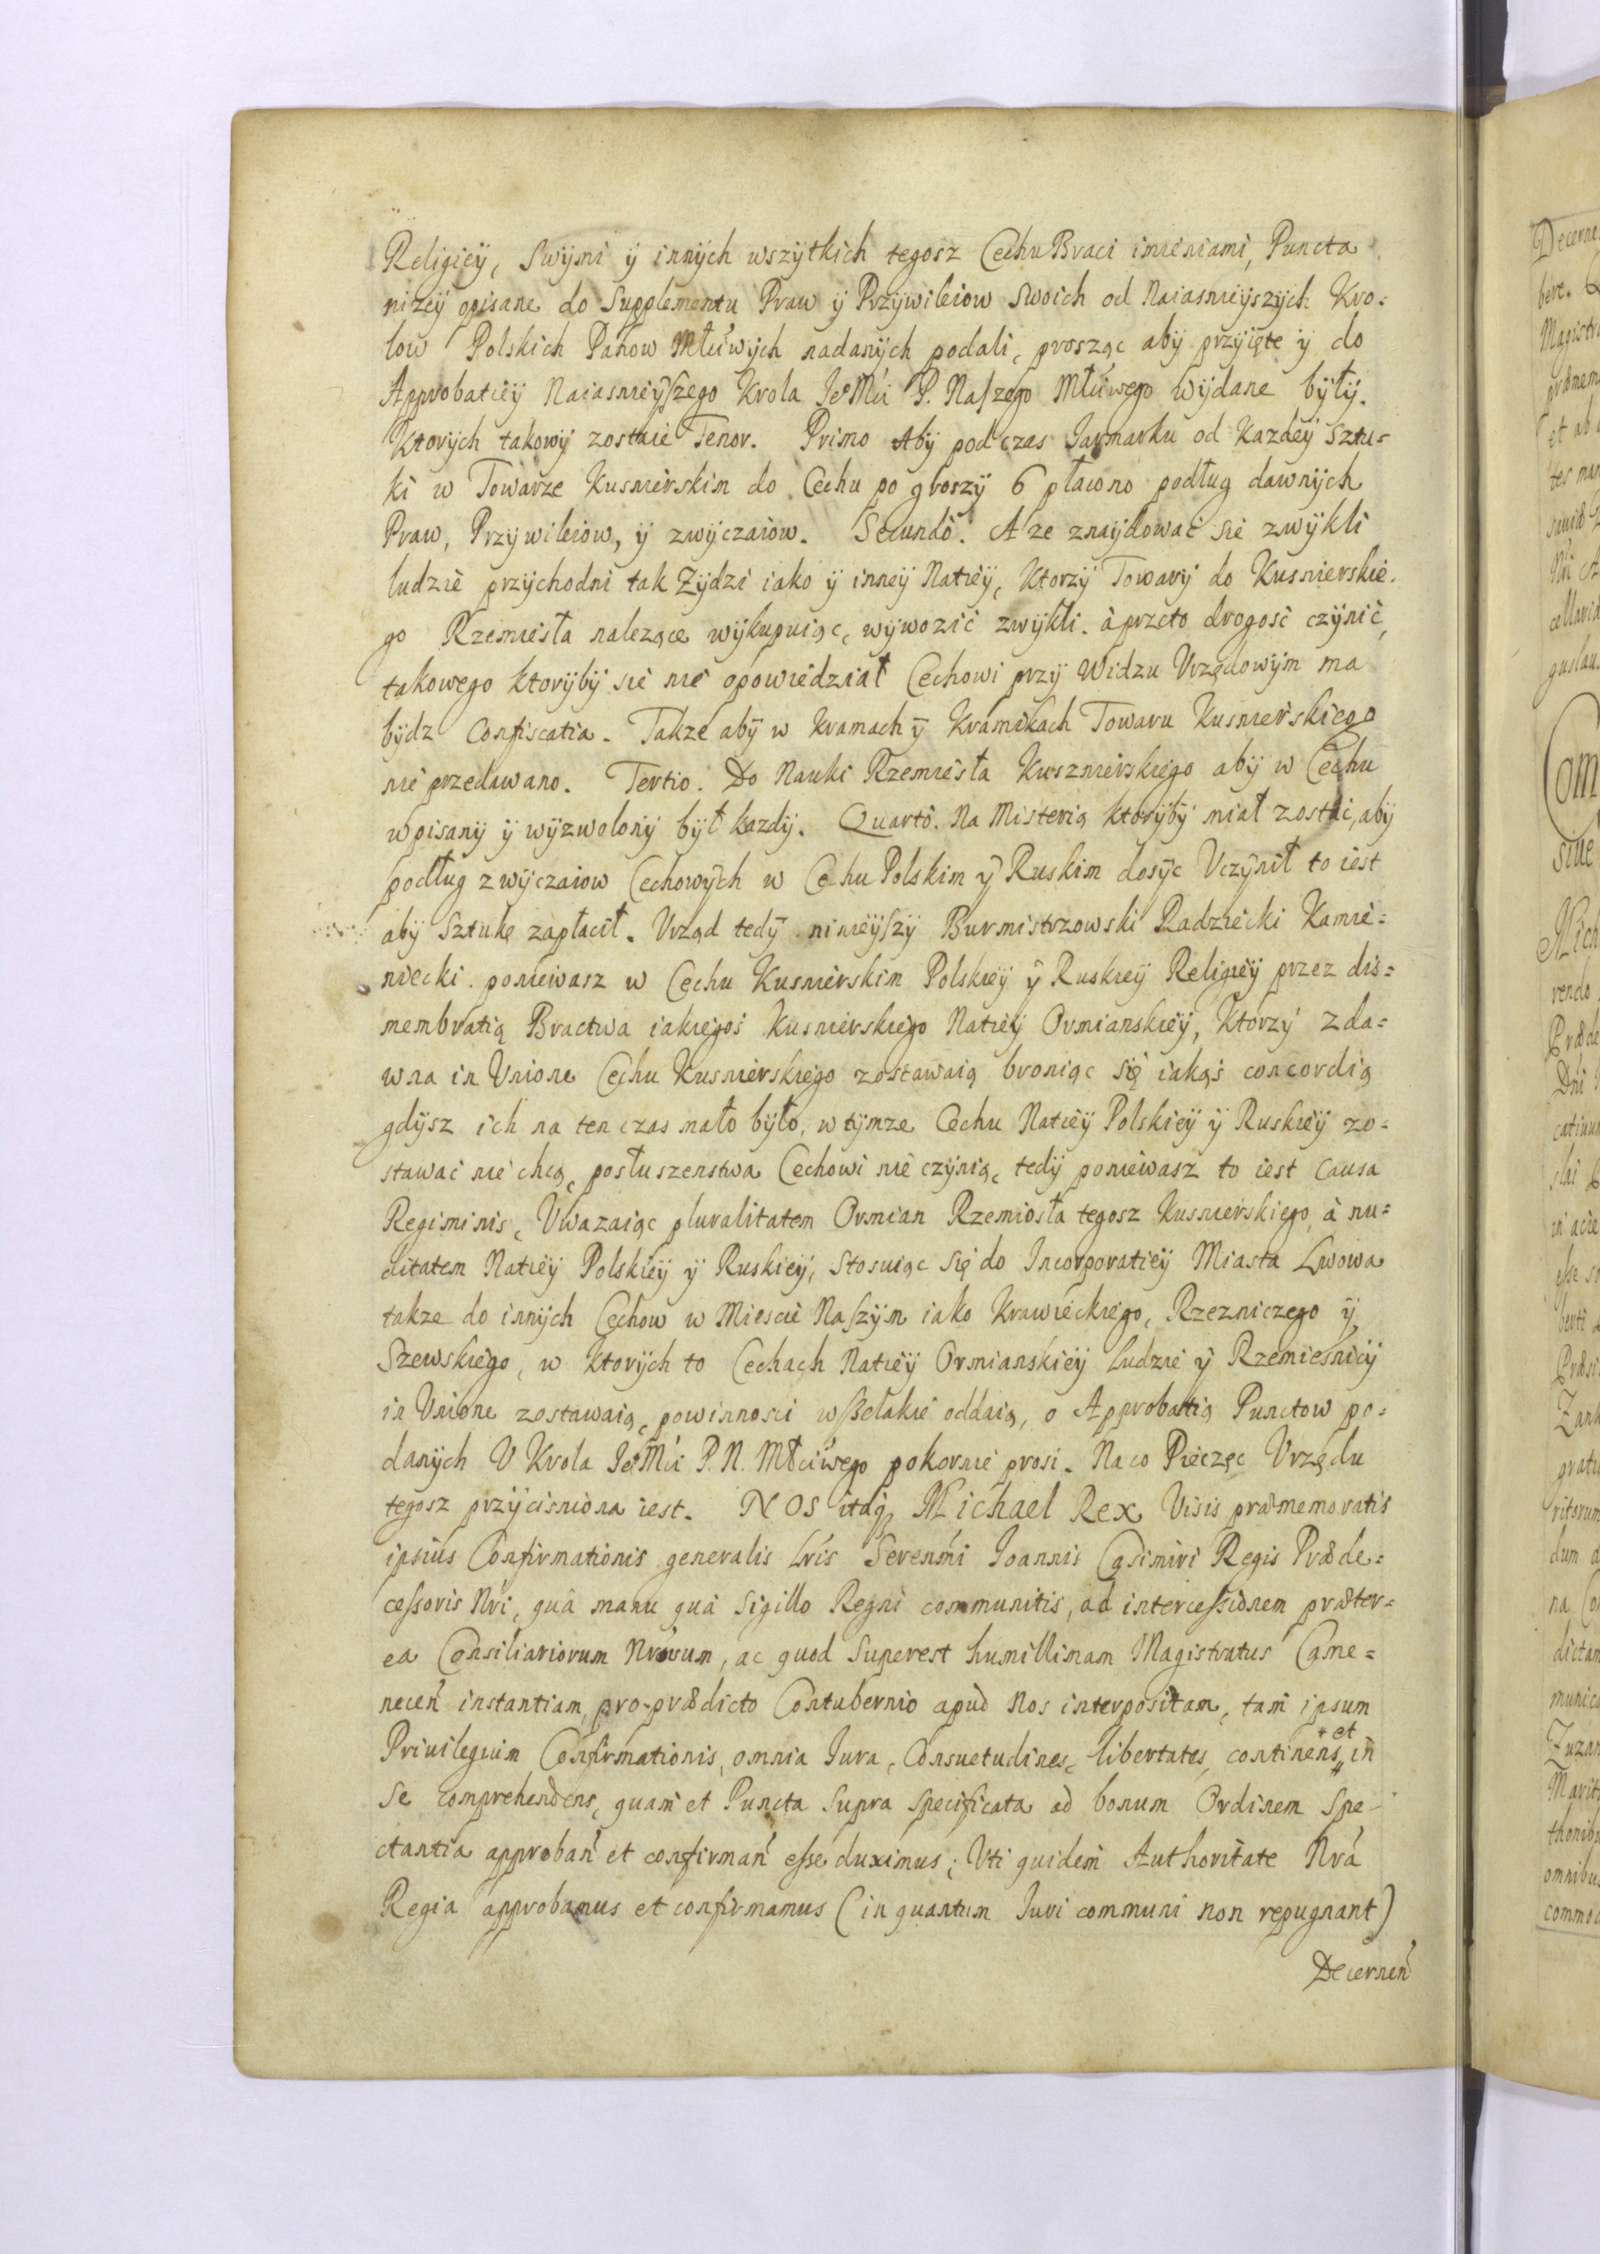 Religiey, Swymi ÿ innÿch wszÿtkich tegosz Cechu Braci imieniami, Puncta
nizeÿ opisane do Supplementu Praw ÿ Przÿwileiow Swoich od Naiasnieÿszÿch Kro=
low Polskich Panow Młćiwÿch nadanÿch podali, prosząc abÿ przÿięte ÿ do
Approbatieÿ Naiasnieÿszego Krola JeoMći P. Naszego Młćiwego wÿdane bÿłÿ.
Ktorÿch takowÿ zostaie Tenor. Primo Abÿ pod czas Jarmarku od Kazdeÿ Sztu=
ki w Towarze Kusnierskim do Cechu po groszÿ 6 płacono podług dawnÿch
Praw, Przÿwileiow, ÿ zwÿczaiow. Secundò. A ze znaÿdowac sie zwÿkli
ludzie przÿchodni tak Zÿdzi iako ÿ inneÿ Natieÿ, Ktorzÿ Towarÿ do Kusnierskie=
go Rzemiesła nalezące wÿkupuiąc, wÿwozić zwÿkli. à przeto drogość czÿnić,
takowego ktorÿbÿ sie nie opowiedział Cechowi przÿ Widzu Vrzędowÿm ma
bÿdz Confiscatia. Takze abÿ w kramach ÿ Kramikach Towaru Kusnierskiego
nie przedawano. Tertio. Do Nauki Rzemiesła Kusznierskiego abÿ w Cechu
wpisanÿ ÿ wÿzwolonÿ bÿł kazdÿ. Quartò. Na Misterią ktorÿbÿ miał zostać, abÿ
podług zwÿczaiow Cechowÿch w Cechu Polskim ÿ Ruskim dosÿc Vczÿnił to iest
abÿ Sztukę zapłacił. Vrząd tedÿ ninieÿszÿ Burmistrzowski Radziecki Kamie=
niecki. poniewasz w Cechu Kusnierskim Polskieÿ ÿ Ruskieÿ Religieÿ przez dis=
membratią Bractwa iakiegos Kusnierskiego Natieÿ Ormianskieÿ, Ktorzÿ zda=
wna in Vnione Cechu Kusnierskiego zostawaią broniąc się iakąś concordią
gdÿsz ich na ten czas mało bÿło, w tÿmze Cechu Natieÿ Polskieÿ ÿ Ruskieÿ zo=
stawać nie chcą, posłuszenstwa Cechowi nie czÿnią, tedÿ poniewasz to iest Causa
Regiminis, Vwazaiąc pluralitatem Ormian Rzemiosła tegosz Kusnierskiego, à nu=
ditatem Natieÿ Polskieÿ ÿ Ruskieÿ, stosuiąc się do Incorporatieÿ Miasta Lwowa
takze do innÿch Cechow w Miescie Naszÿm iako Krawieckiego, Rzezniczego ÿ
Szewskiego, w Ktorÿch to Cechach Natieÿ Ormianskieÿ Ludzie ÿ Rzemiesnicÿ
in Vnione zostawaią, powinnosci wszelakie oddaią, o Approbatią Punctow po=
danÿch V Krola JeoMći P. N. Młćiwego pokornie prosi. Na co Pieczęc Vrzędu
tegosz przÿcisniona iest. NOS itaq, Michael Rex Visis præmemoratis
ipsius Confirmationis generalis Lris Serenmi Joannis Casimiri Regis Præde=
cessoris Nri, quâ manu quâ Sigillo Regni communitis, ad intercessionem præter=
ea Consiliariorum Nrorum, ac quod Superest humillimam Magistratus Came=
necen instantiam, pro prædicto Contubernio apud Nos interpositam, tam ipsum
Priuilegium Confirmationis, omnia Jura, Consuetudines, libertates, continens, + et in
se comprehendens, quam et Puncta Supra Specificata ad bonum Ordinem Spe-
ctantia approban et confirman esse duximus; Vti quidem Authoritate Nra
Regia approbamus et confirmamus (in quantum Juri communi non repugnant)
Decernen